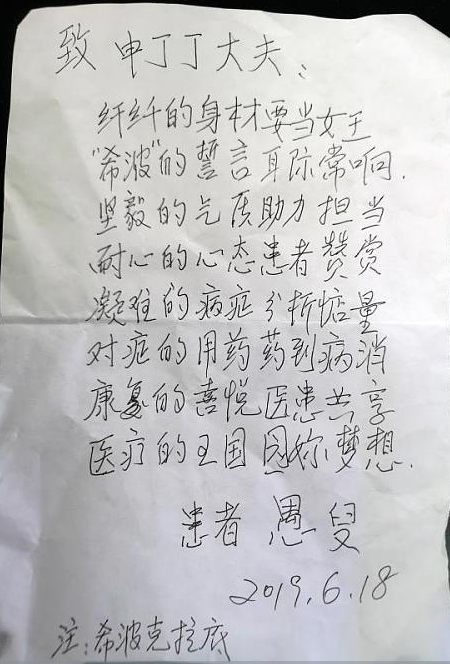 致 申丁丁大夫：
纤纤的身材要当女王
"希波"的誓言耳际常响.
坚毅的气质助力担当
耐心的心态患者赞赏
凝难的病症分析惦量
对症的用药药到病消
康复的喜悦医患共享
医疗的王国圆你梦想.
患者 愚叟
2019.6.18
注:希波克拉底